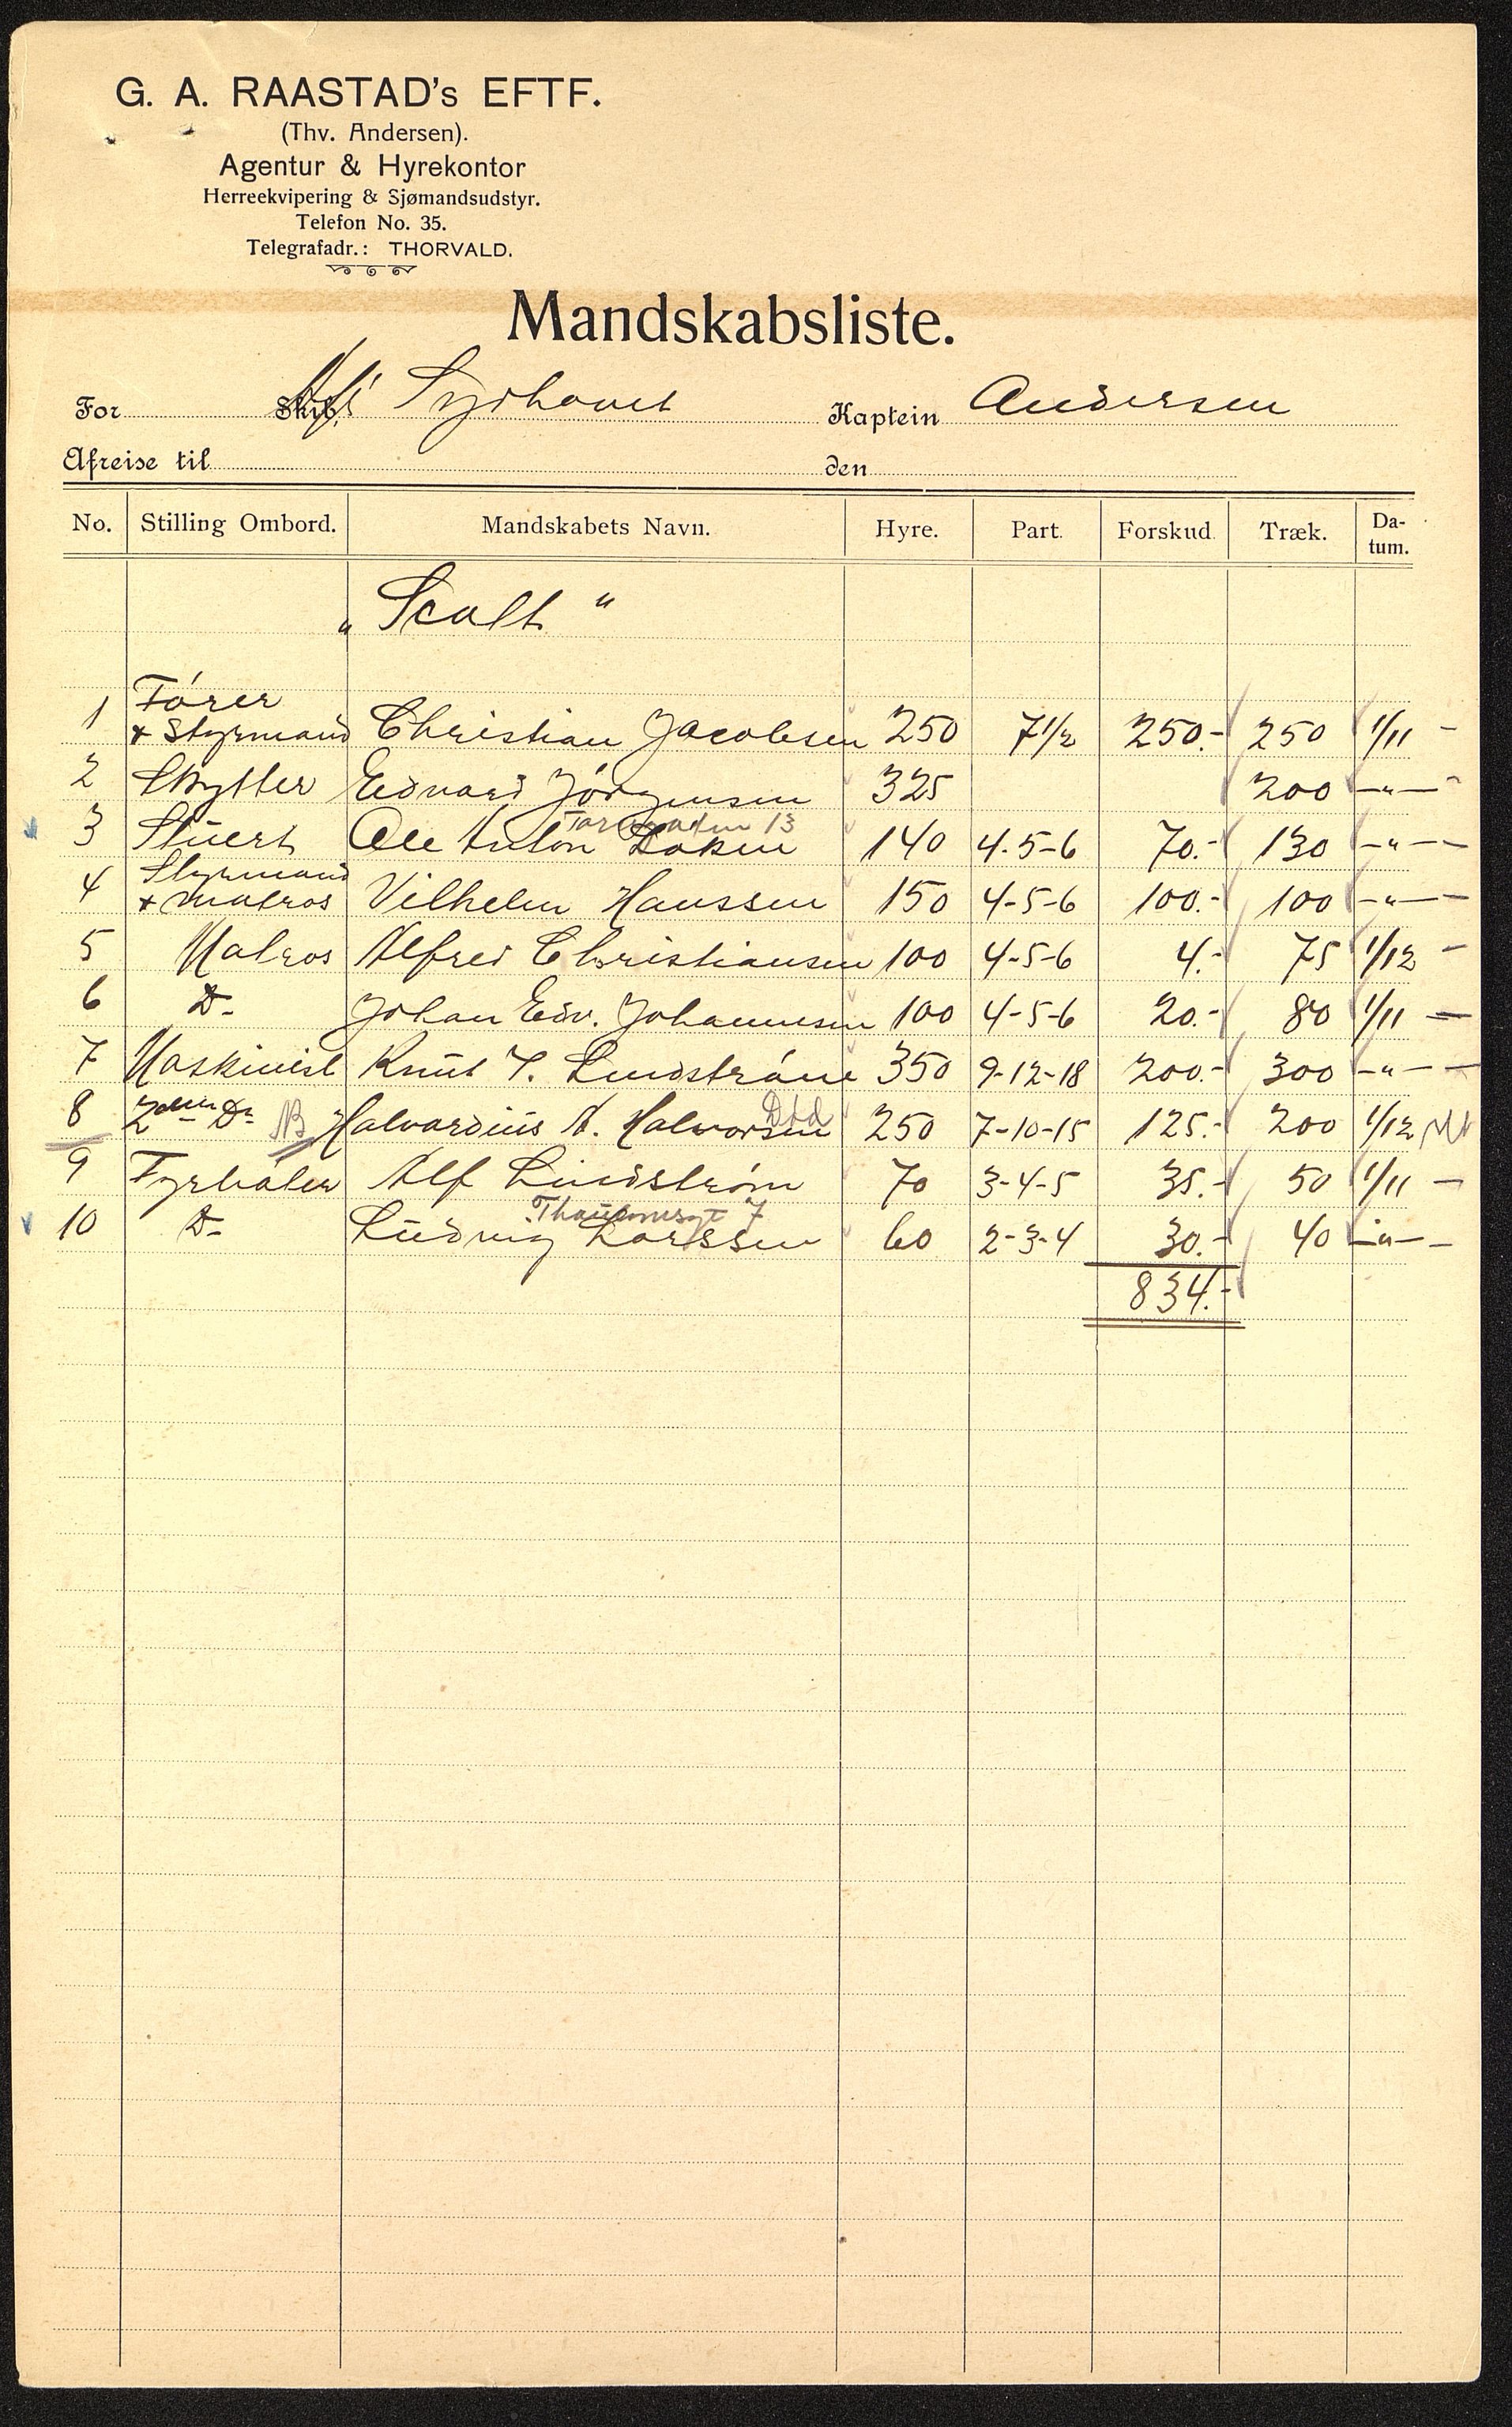 G. A. RAASTAD's EFTF.
(Thv. Andersen).
Agentur & Hyrekontor
Herreekvipering & Sjømandsudstyr.
Telefon No. 35.
Telegrafadr.: THORVALD.
Mandskabsliste.
For Skib. A/S Sydhavet Kaptein Andersen
Afreise til den
No. Stilling Ombord. Mandskabets Navn. Hyre. Part. Forskud. Træk. Datum.
„Scott"
1 Fører + Styrmand Christian Jacobsen 250 7½ 250.- 250 1/11 -
2 Skytter Edvard Jörgensen 325 200 -"-
3 Stuert Ole Anton Loken 13 140 4-5-6 70.- 130 -"-
4 Styrmand + Matros Vilhelm Hanssen 150 4-5-6 100.- 100 -"-
5 Matros Alfred Christiansen 100 4-5-6 4.- 75 1/12 -
6 Do Johan Edv. Johannesen 100 4-5-6 20.- 80 1/11 -
7 Maskinist Knut T. Lindströme 350 9-12-18 200.- 300 -"-
8 2den Do NB Halvardius A. Halvorsen Død 250 7-10-15 125.- 200 1/12
9 Fyrbøter Alf Lindstrøm 70 3-4-5 35.- 50 1/11 -
10 Do Ludvig Larssen 7 60 2-3-4 30.- 40 -"-
834.-